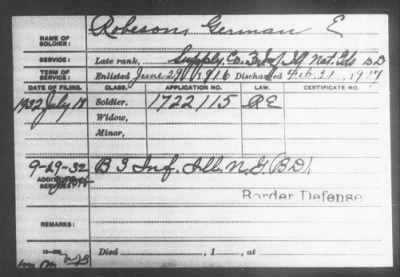 NAME OF SOLDIER: Robesons German E
SERVICE: Late rank, Supply Co. 3 Inf Ill Nat. Gds B D
TERM OF SERVICE: Enlisted June 29, 1916 Discharged Feb. 21, 1917
DATE OF FILING. CLASS. APPLICATION NO. LAW. CERTIFICATE NO.
1932 July 18 Soldier, 1722115 RE
Widow,
Minor,
9-29-32 B 3 Inf. Ill. N. G. (B D).
ADDITIONAL SERVICES:
Border Defense
REMARKS:
Died , 1 , at